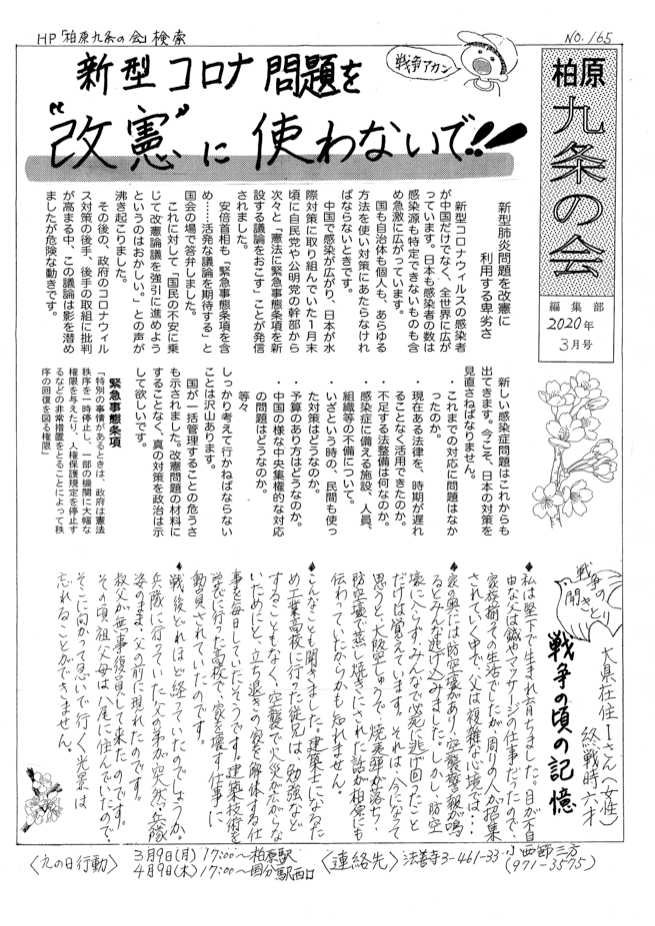 HP「柏原九条の会」検索
NO.165
新型コロナ問題を
"改憲"に使わないで!!
戦争アカン
柏原
九条の会
編集部
2020年
3月号
新型肺炎問題を改憲に
利用する卑劣さ
新型コロナウィルスの感染者
が中国だけでなく、全世界に広が
っています。日本も感染者の数は
感染源も特定できないものも含
め急激に広がっています。
国も自治体も個人も、あらゆる
方法を使い対策にあたらなけれ
ばならないときです。
中国で感染が広がり、日本が水
際対策に取り組んでいた1月末
頃に自民党や公明党の幹部から
次々と「憲法に緊急事態条項を新
設する議論をおこす」ことが発信
されました。
安倍首相も「緊急事態条項を含
め……活発な議論を期待する」と
国会の場で答弁しました。
これに対して「国民の不安に乗
じて改憲論議を強引に進めよう
というのはおかしい。」との声が
沸き起こりました。
その後の、政府のコロナウィル
ス対策の後手、後手の取組に批判
が高まる中、この議論は影を潜め
ましたが危険な動きです。
新しい感染症問題はこれからも
出てきます。今こそ、日本の対策を
見直さねばなりません。
・これまでの対応に問題はなか
ったのか。
・現在ある法律を、時期が遅れ
ることなく活用できたのか。
・不足する法整備は何なのか。
・感染症に備える施設、人員、
組織等の不備について。
・いざという時の、民間も使っ
た対策はどうなのか。
・予算のあり方はどうなのか。
・中国の様な中央集権的な対応
の問題はどうなのか。
等々
しっかり考えて行かねばならない
ことは沢山あります。
国が一括管理することの危うさ
も示されました。改憲問題の材料に
することなく、真の対策を政治は示
して欲しいです。
緊急事態条項
「特別の事情があるときは、政府は憲法
秩序を一時停止し、一部の機関に大幅な
権限を与えたり、人権保護規定を停止す
るなどの非常措置をとることによって秩
序の回復を図る権限」
戦争の
聞きとり
大県在住Iさん(女性)
終戦時六才
戦争の頃の記憶
◆私は堅下で生まれ育ちました。目が不自
由な父は鍼やマッサージの仕事だったので、
家族揃っての生活でしたが、周りの人が招集
されていく中で、父は複雑な心境では…
◆家の奥には防空壕があり、空襲警報が鳴
るとみんな逃げ込みました。しかし、防空
壕に入らず、みんなで必死に逃げ回ったこと
だけは覚えています。それは、今になって
思うと、大阪空しゅうで、焼夷弾が落ち、
防空壕で蒸し焼きにされた話が柏原にも
伝わっていたからかも知れません。
◆こんなことも聞きました。建築士になるた
め工業高校に行った従兄は、勉強など
することもなく、空襲で火災が広がらな
いためにと、立ち退きの家を解体する仕
事を毎日していたそうです。建築技術を
学びに行った高校で、家を壊す仕事に
動員されていたのです。
◆戦後どれほど経っていたのでしょうか、
兵隊に行っていた父の弟が突然、兵隊
姿のまま、父の前に現れたのです。
叔父が無事復員して来たのです。
その頃、祖父母は八尾に住んでいたので、
そこに向かって急いで行く光景は
忘れることができません。
〈九の日行動〉
3月9日(月) 17:00~柏原駅
4月9日(木) 17:00~国分駅西口
〈連絡先〉法善寺3-461-33 小西節三方
(971-3575)